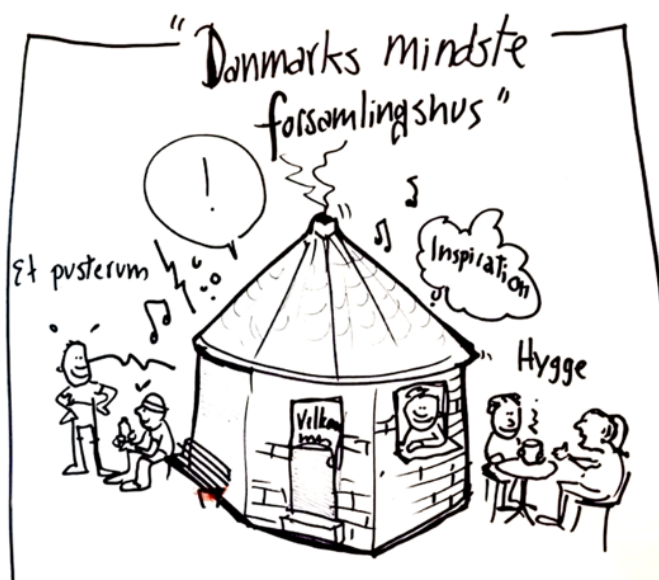 "Danmarks mindste
forsamlingshus"
!
Et pusterum
Inspiration
Hygge
Velkom
men